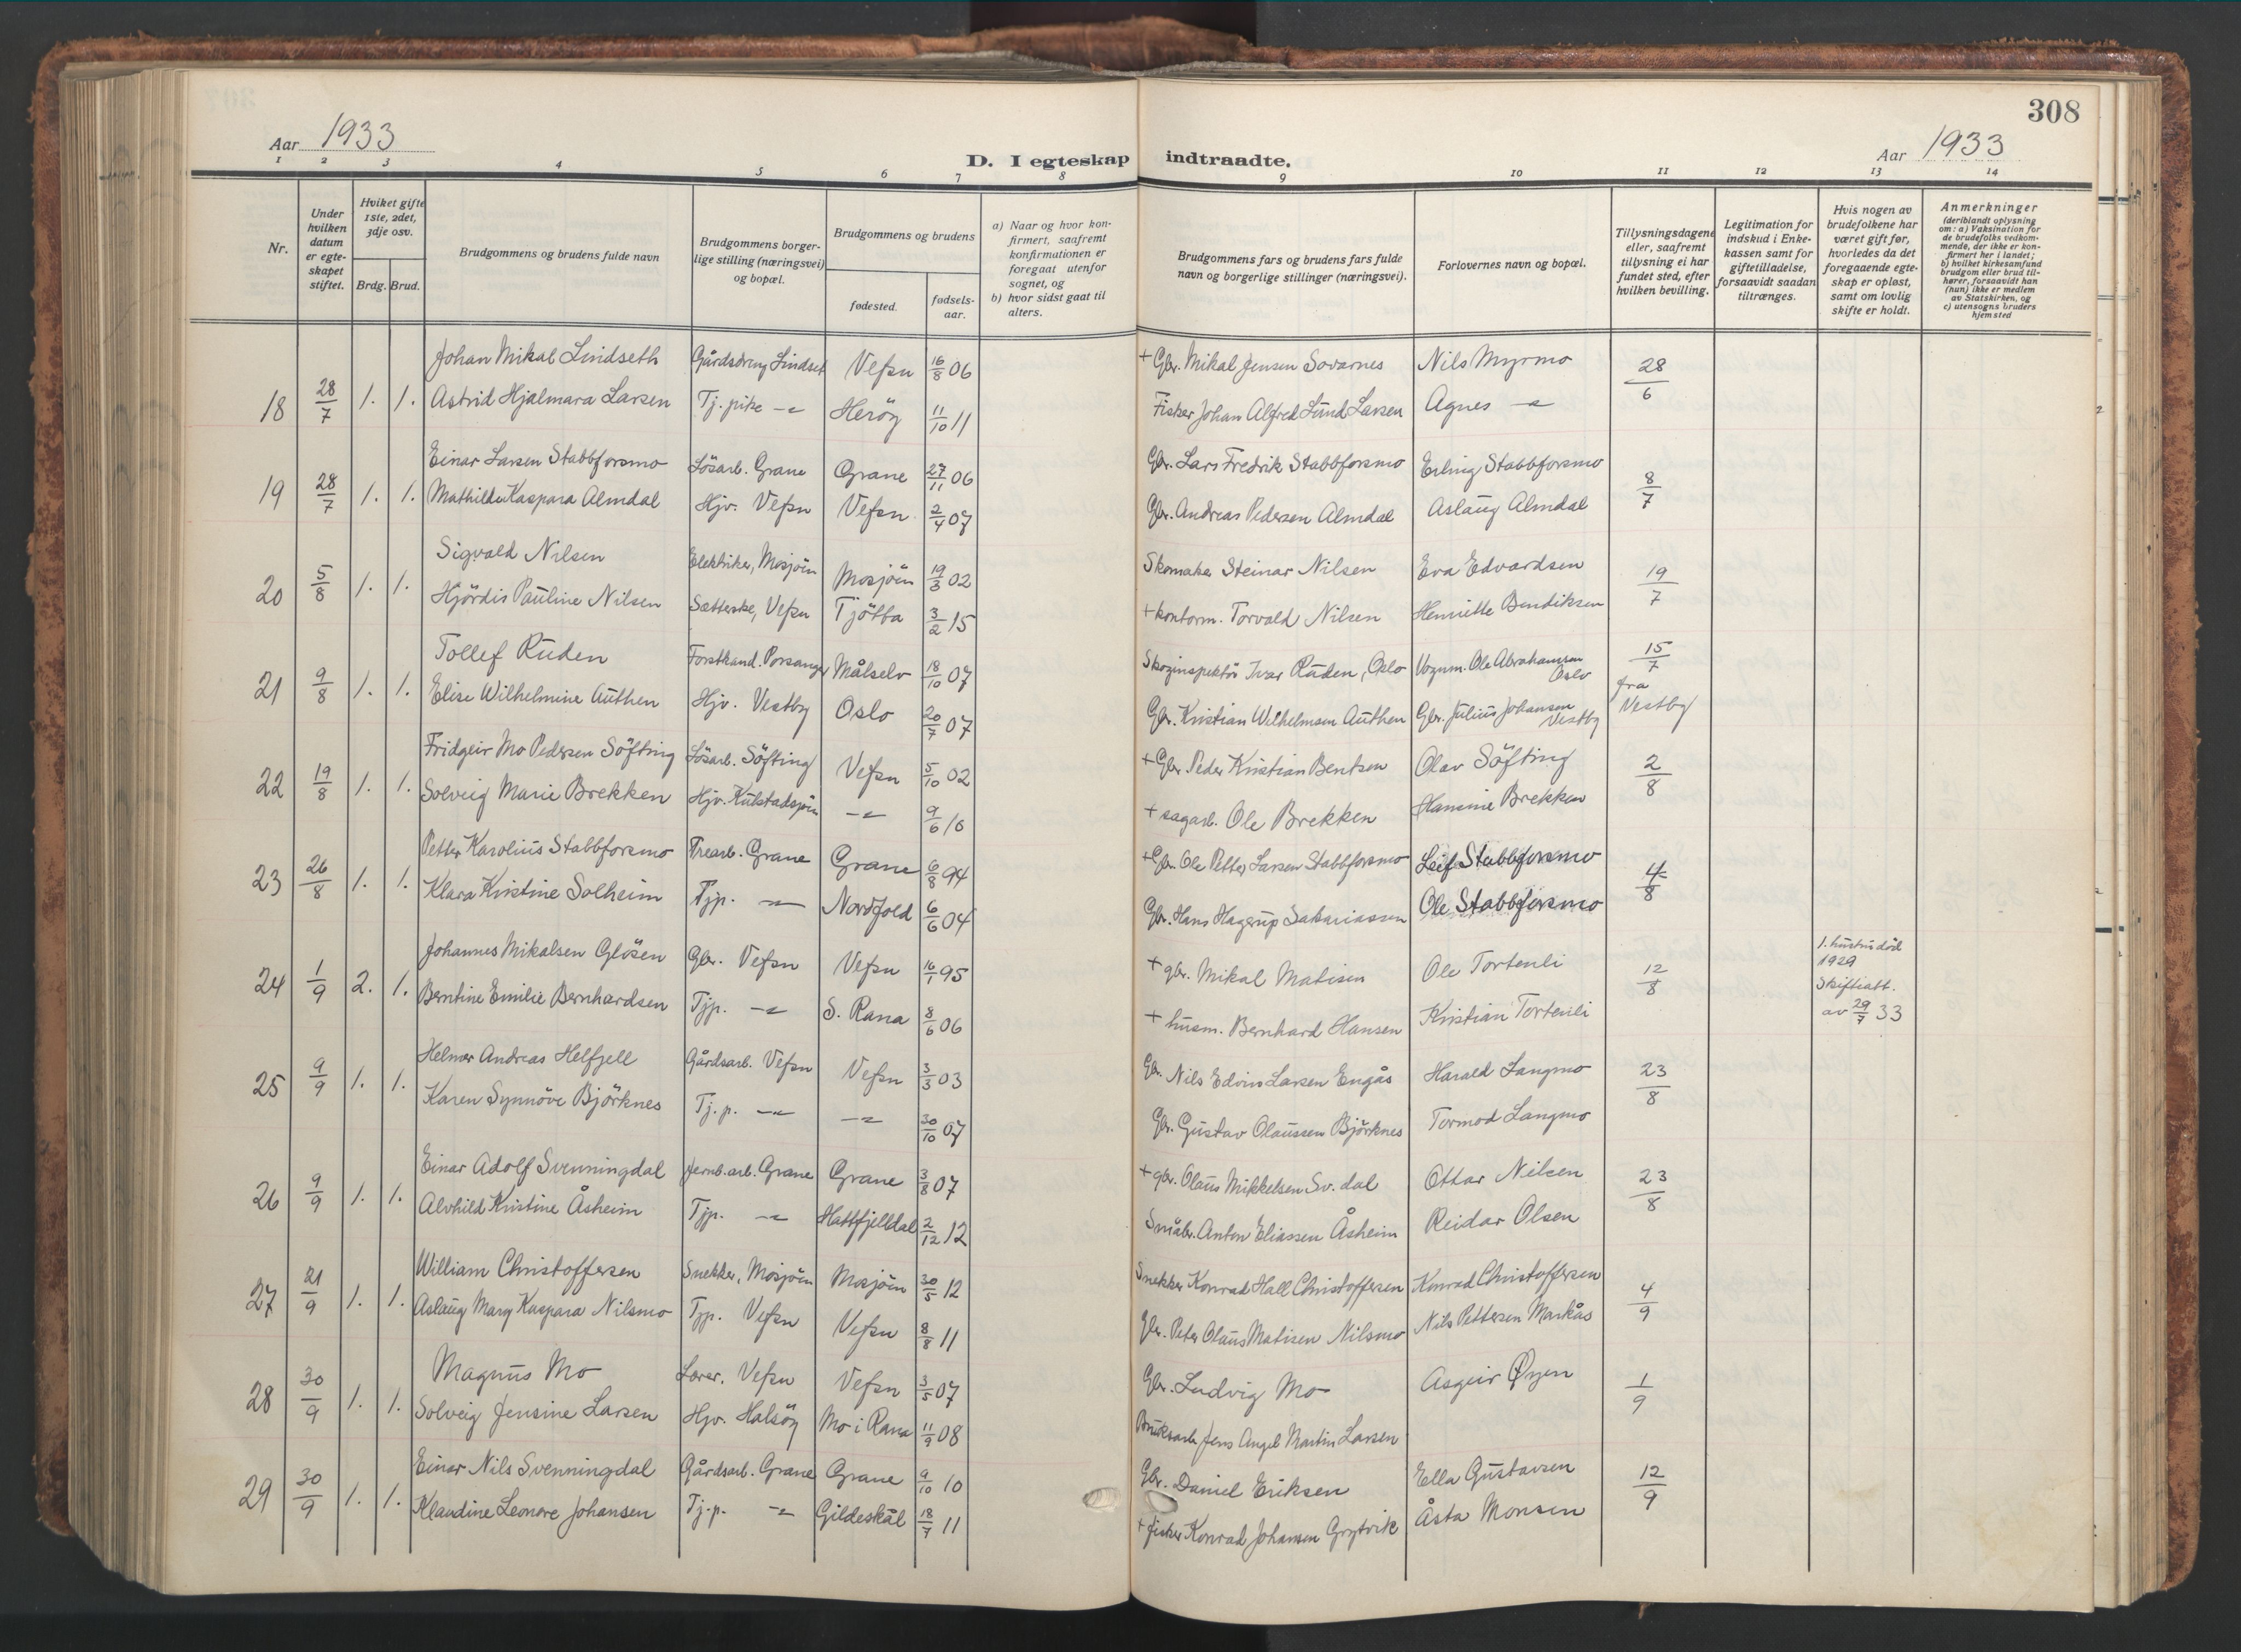 308
Aar 1933
D. I egteskap indtraadte.
Aar 1933
1 2 3 4 5 6 7 8 9 10 11 12 13 14
Nr.
Under hvilken datum er egteskapet stiftet.
Hviket gifte 1ste, 2det, 3dje osv.
Brdg. Brud.
Brudgommens og brudens fulde navn
Brudgommens borgerlige stilling (næringsvei) og bopæl.
Brudgommens og brudens
fødested.
fødsels-aar.
a) Naar og hvor konfirmert, saafremt konfirmationen er foregaat utenfor sognet, og
b) hvor sidst gaat til alters.
Brudgommens fars og brudens fars fulde navn og borgerlige stillinger (næringsvei).
Forlovernes navn og bopæl.
Tillysningsdagene eller, saafremt tillysning ei har fundet sted, efter hvilken bevilling.
Legitimation for indskud i Enkekassen samt for giftetilladelse, forsaavidt saadan tiltrænges.
Hvis nogen av brudefolkene har været gift før, hvorledes da det foregaaende egteskap er opløst, samt om lovlig skifte er holdt.
Anmerkninger (deriblandt oplysning om: a) Vaksination for de brudefolks vedkommende, der ikke er konfirmert her i landet; b) hvilket kirkesamfund brudgom eller brud tilhører, forsaavidt han (hun) ikke er medlem av Statskirken, og c) utensogns bruders hjemsted
Johan Mikal Lindseth Gårdsdreng Lindset Vefsn 16/8 06 + Gbr. Mikal Jensen Sovarnes Nils Myrmo 28/6
18 28/7 1. 1. Astrid Hjalmara Larsen Tj. pike -"- Herøy 11/10 11 Fisker Johan Alfred Lund Larsen Agnes -"-
Einar Larsen Stabbforsmo Løsarb. Grane Grane 27/11 06 Gbr. Lars Fredrik Stabbforsmo Erling Stabbforsmo 8/7
19 28/7 1. 1. Mathilde Kaspara Almdal Hjv. Vefsn Vefsn 2/4 07 Gbr. Andreas Pedersen Almdal Aslaug Almdal
Sigvald Nilsen Elektriker, Mosjöen Mosjöen 19/3 02 Skomaker Steinar Nilsen Eva Edvardsen 19/7
20 5/8 1. 1. Hjördis Pauline Nilsen Sætterske, Vefsn Tjötta 3/2 15 + kontorm. Torvald Nilsen Henriette Bendiksen
Tollef Ruden Forstkand. Porsanger Målselv 18/10 07 Skoginspektör Ivar Ruden, Oslo Vognm. Ole Abrahamsen Oslo 15/7 fra Vestby
21 9/8 1. 1. Elise Wilhelmine Authen Hjv. Vestby Oslo 20/7 07 Gbr. Kristian Wilhelmsen Authen Gbr. Julius Johansen Vestby
Fridgeir Mo Pedersen Söfting Lösarb. Söfting Vefsn 5/10 02 + Gbr. Peder Kristian Bentsen Olav Söfting 2/8
22 19/8 1. 1. Solveig Marie Brekken Hjv. Kulstadsjöen -"- 9/6 10 + sagarb. Ole Brekken Hansine Brekken
Petter Karolius Stabbforsmo Trearb. Grane Grane 6/8 94 + Gbr. Ole Petter Larsen Stabbforsmo Leif Stabbforsmo 4/8
23 26/8 1. 1. Klara Kristine Solheim Tjp. -"- Nordfold 6/6 04 Gbr. Hans Hagerup Sakariassen Ole Stabbforsmo
Johannes Mikalsen Glösen Gbr. Vefsn Vefsn 16/1 95 + gbr. Mikal Matisen Ole Tortenli 12/8 1. hustru död 1929 Skifteatt. av 29/7 33
24 1/9 2. 1. Berntine Emilie Bernhardsen Tjp. -"- S. Rana 8/6 06 + husm. Bernhard Hansen Kristian Tortenli
Helmer Andreas Helfjell Gårdsarb. Vefsn Vefsn 3/3 03 Gbr. Nils Edvin Larsen Engås Harald Langmo 23/8
25 9/9 1. 1. Karen Synnöve Björknes Tj. p. -"- -"- 30/10 07 Gbr. Gustav Olaussen Björknes Tormod Langmo
Einar Adolf Svenningdal Jernb.arb. Grane Grane 3/8 07 + gbr. Olaus Mikkelsen Sv.dal Ottar Nilsen 23/8
26 9/9 1. 1. Alvhild Kristine Åsheim Tjp. -"- Hattfjelldal 2/12 12 Småbr. Anton Eliassen Åsheim Reidar Olsen
William Christoffersen Snekker, Mosjöen Mosjöen 30/5 12 Snekker Konrad Hall Christoffersen Konrad Christoffersen 4/9
27 21/9 1. 1. Aslaug Mary Kaspara Nilsmo Tjp. Vefsn Vefsn 8/8 11 Gbr. Peter Olaus Matisen Nilsmo Nils Pettersen Markås
Magnus Mo Lærer. Vefsn Vefsn 3/5 07 Gbr. Ludvig Mo Asgeir Øyen 1/9
28 30/9 1. 1. Solveig Jensine Larsen Hjv. Halsöy Mo i Rana 11/9 08 Bruksarb. Jens Angel Martin Larsen
Einar Nils Svenningdal Gårdsarb. Grane Grane 9/10 10 Gbr. Daniel Eriksen Ella Gustavsen 12/9
29 30/9 1. 1. Klaudine Leonore Johansen Tj.p. -"- Gildeskål 18/7 11 + fisker Konrad Johansen Grytvik Åsta Monsen